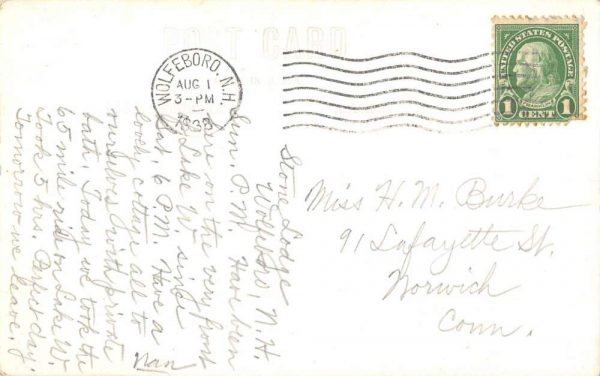 POST CARD
WOLFEBORO, N.H.
AUG 1
3-PM
UNITED STATES POSTAGE
FRANKLIN
1 CENT 1
Miss H. M. Burke
91 Lafayette St.
Norwich
Conn.
Stone Lodge
Wolfeboro, N.H.
Sun. P.M. Have been
here on the very front
of Lake W. since
Sat. 6 P.M. Have a
lovely cottage all to
ourselves with private
bath. Today we took the
65 mile ride on Lake W.
Took 5 hrs. Perfect day.
Tomorrow we leave.
Nan